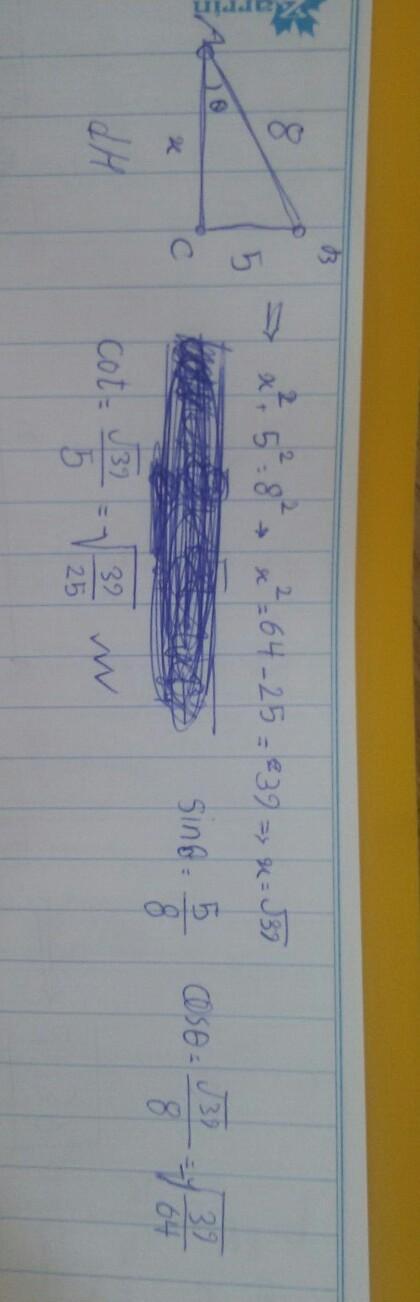 Zarrin
A B C 8 5 x θ
⇒ x² + 5² = 8² → x² = 64 - 25 = 39 ⇒ x = √39
sinθ = 5/8 cosθ = √39/8 = √(39/64)
cot = √39/5 = √(39/25)